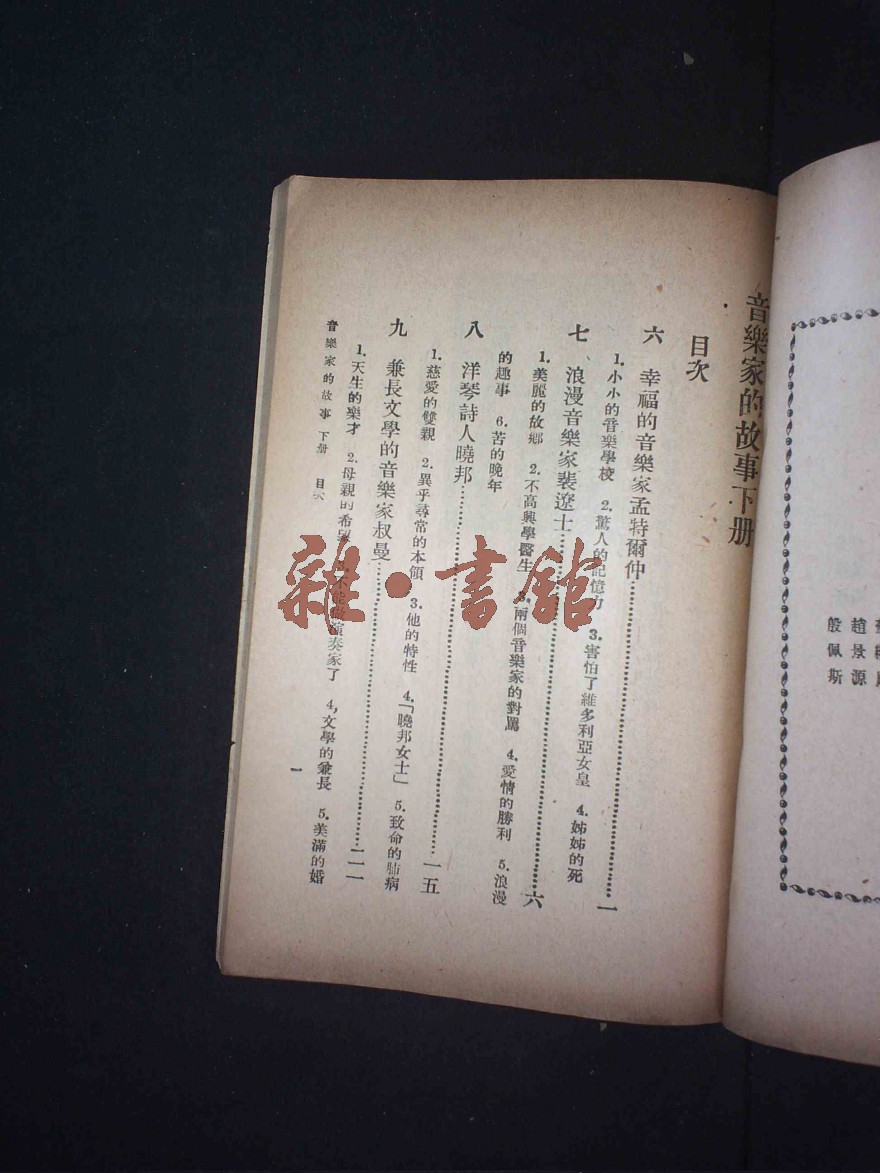 趙景源
殷佩斯
音樂家的故事下册
目次
六 幸福的音樂家孟特爾仲……一
1.小小的音樂學校 2.驚人的記憶力 3.害怕了維多利亞女皇 4.姊姊的死
七 浪漫音樂家裴遼士……六
1.美麗的故鄉 2.不高興學醫生 3.兩個音樂家的對罵 4.愛情的勝利 5.浪漫
的趣事 6.苦的晚年
八 洋琴詩人曉邦……一五
1.慈愛的雙親 2.異乎尋常的本領 3.他的特性 4.「曉邦女士」 5.致命的肺病
九 兼長文學的音樂家叔曼……二一
1.天生的樂才 2.母親的希望 3.不能做演奏家了 4.文學的兼長 5.美滿的婚
音樂家的故事 下册 目次
一
雜·書館